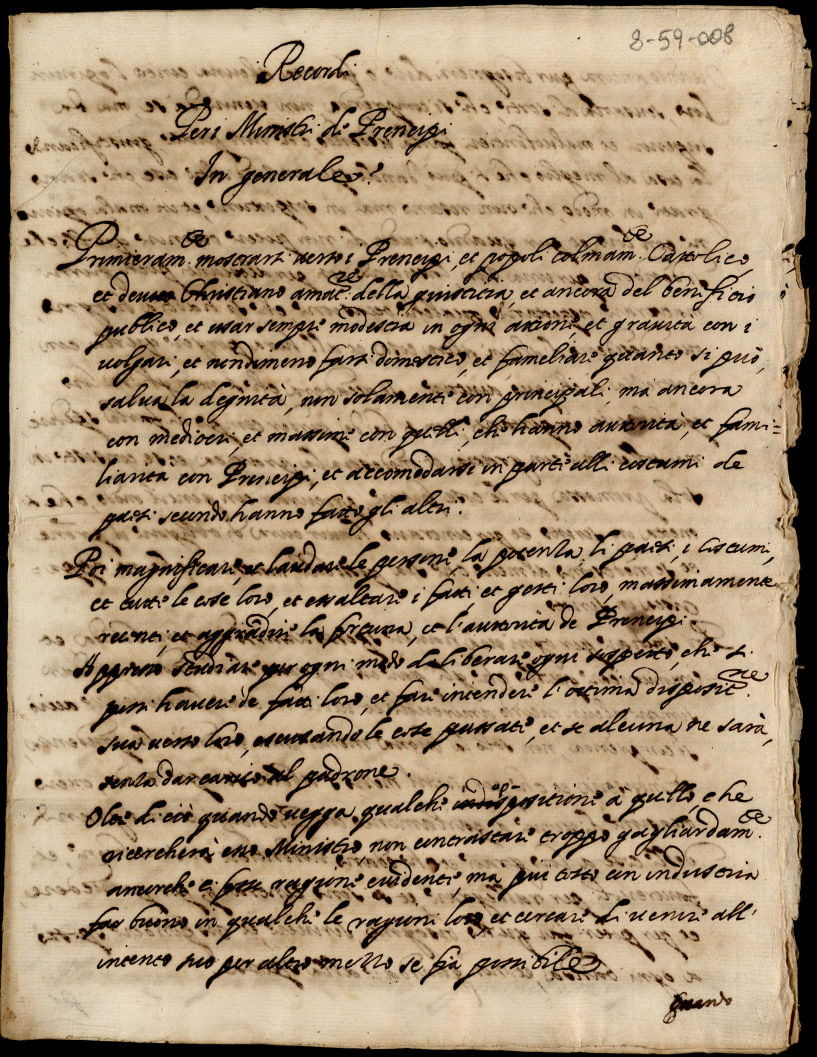 8-59-008
Recordi
Per i Ministri de Prencipi
In generale.
Primieram.te mostrarsi verso i Prencipi, et popoli colmam.te Catolico,
et devoto Christiano amat.re della giusticia, et ancora del beneficio
publico, et usar sempre modestia in ogni attione, et gravità con i
volgari, et nondimeno farsi domestico, et fameliare quanto si può,
salva la degnità, non solamente con principali, ma ancora
con mediocri, et massime con quelli, che hanno autorità, et fami=
liarità con Prencipi, et accomodarsi in parte alli costumi de
paesi secondo hanno fatto gli altri.
Poi magnificare, et laudare le persone, la potenza, li paesi, i costumi,
et tutte le cose loro, et essaltare i fatti et gesti loro, massimamente
recenti, et aggrandire la fortuna, et l'autorità de Prencipi.
Appresso studiare per ogni modo de liberare ogni sospetto, che si
possi havere de fatti loro, et fare intendere l'ottima disposit.ne
sua verso loro, escusando le cose passate, et se alcuna ne sarà,
senza dar carico al padrone.
Oltre di ciò quando vegga qualche indispositione a quello che
ricercherà esso Ministro non contrastare troppo gagliardam.te
ancorche ci fosse ragione evidente, ma più tosto con industria
far buone in qualche le ragioni loro, et cercare di venire all'
intento suo per altro mezzo se fia possibile
Quando